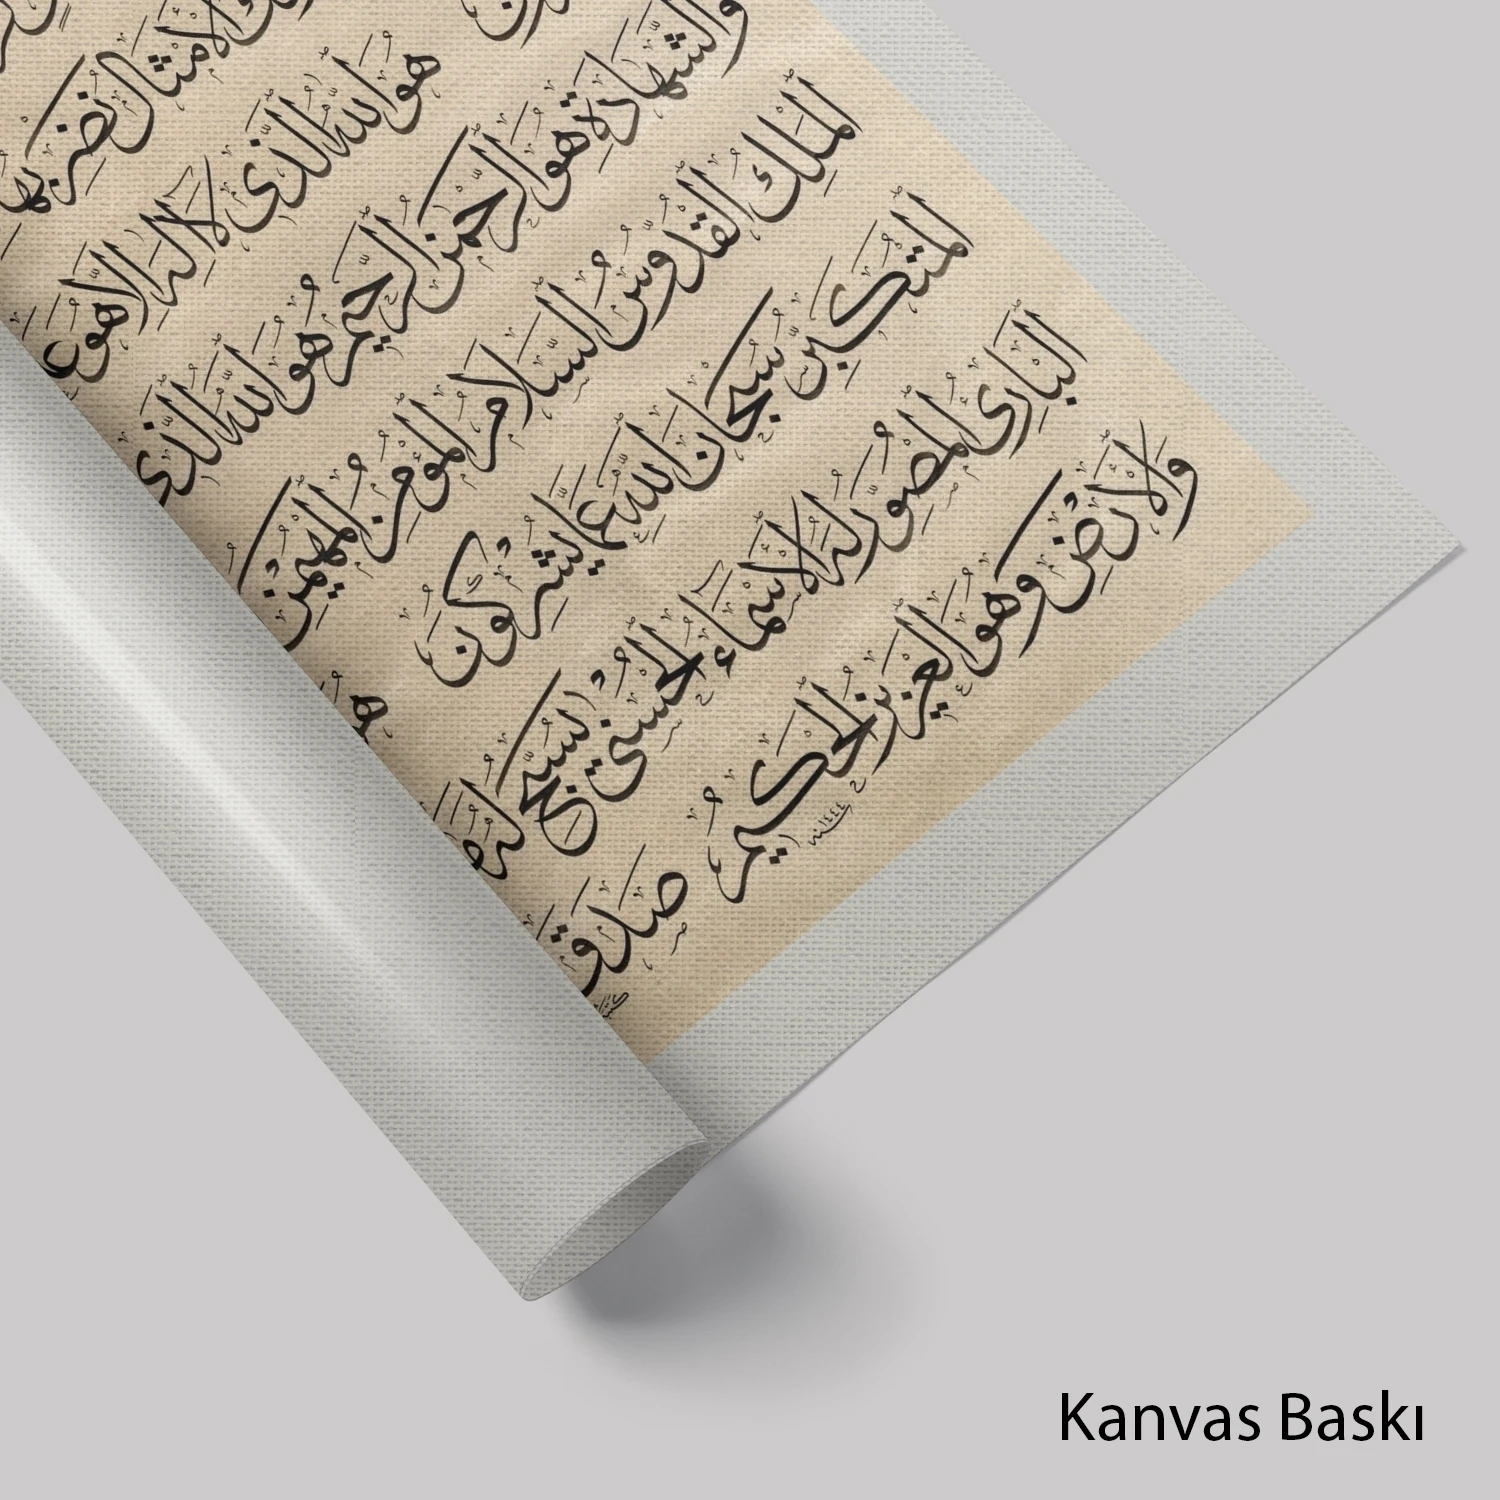 الأمثال نضربها
هو الله الذي لا إله إلا هو
والشهادة هو الرحمن الرحيم هو الله الذي
الملك القدوس السلام المؤمن المهيمن
المتكبر سبحان الله عما يشركون هو
البارئ المصور له الأسماء الحسنى يسبح له
والأرض وهو العزيز الحكيم صدق
١٤٤٤
Kanvas Baskı